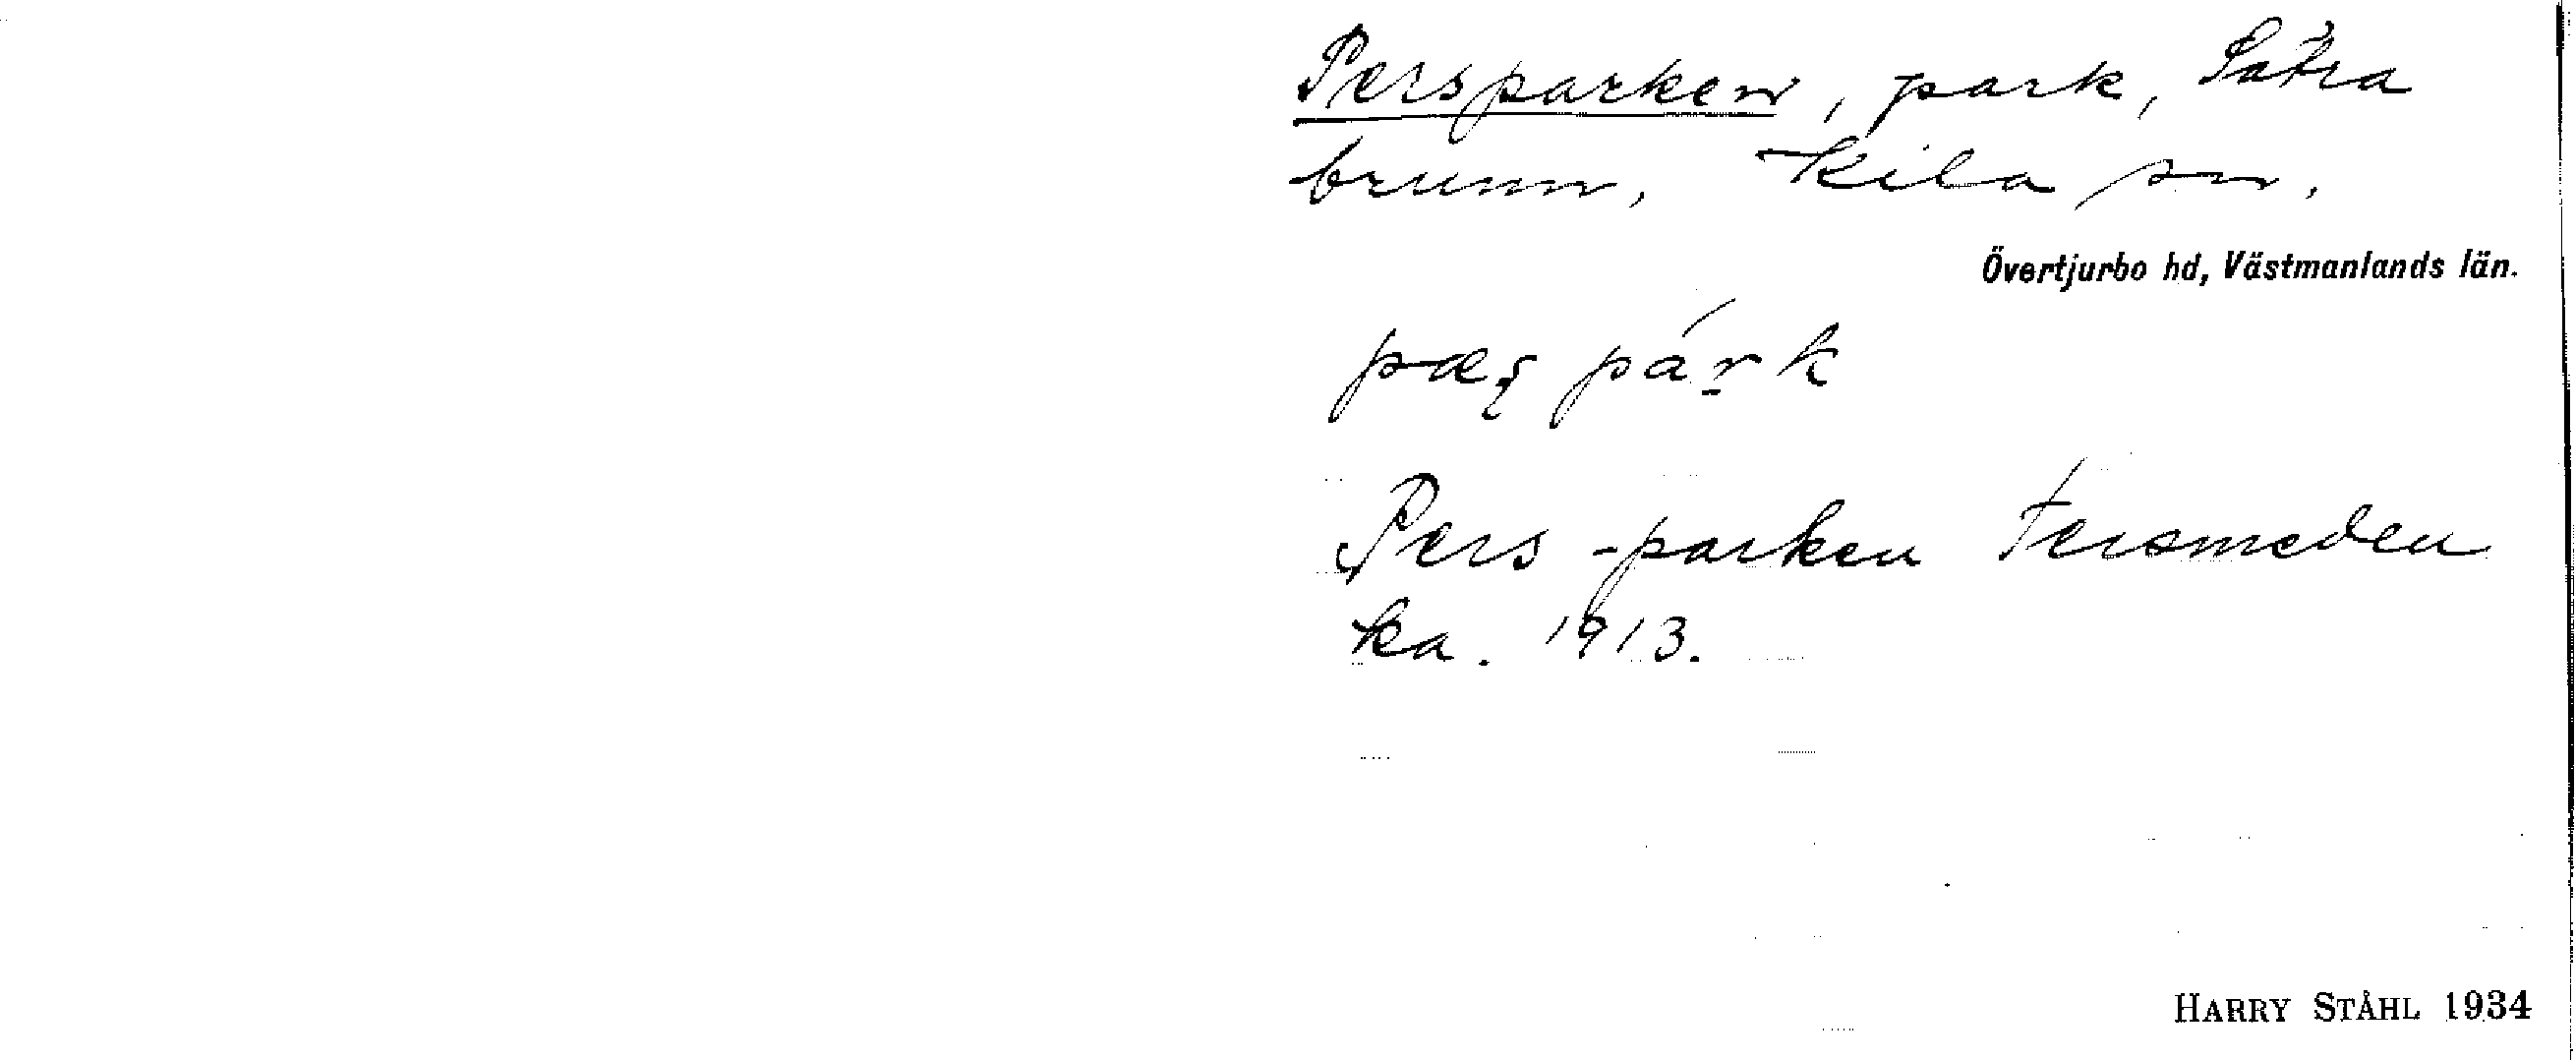 Persparken, park, Sätra
brunn, Kila sn.
Övertjurbo hd, Västmanlands län.
pæʂ párk
Pers-parken Fersmeden
ka. 1913.
HARRY STÅHL 1934